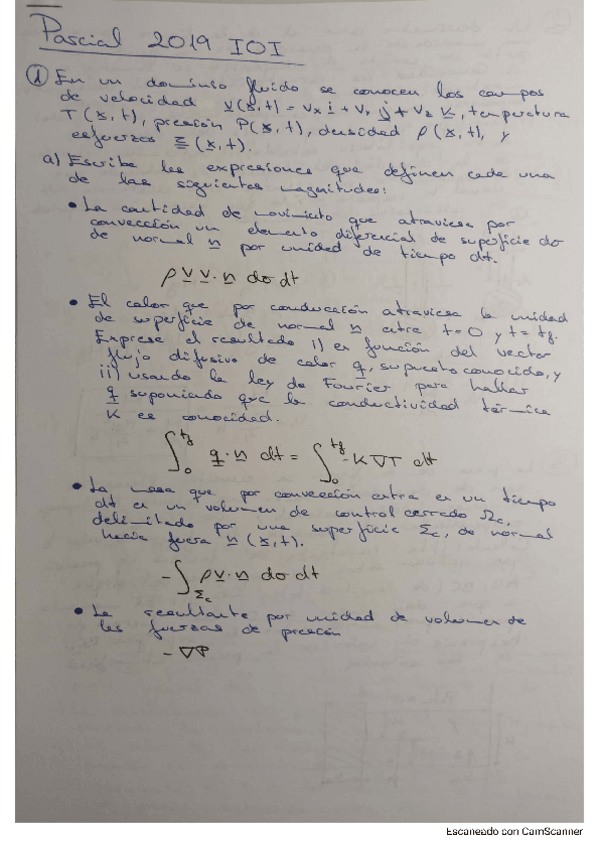 Parcial 2019 IOI
① En un dominio fluido se conocen los campos
de velocidad v(x,t) = vx i + vy j + vz k, temperatura
T(x,t), presión P(x,t), densidad ρ(x,t), y
esfuerzos Σ(x,t).
a) Escribe las expresiones que definen cada una
de las siguientes magnitudes:
• La cantidad de movimiento que atraviesa por
convección un elemento diferencial de superficie dσ
de normal n por unidad de tiempo dt.
ρ v v · n dσ dt
• El calor que por conducción atraviesa la unidad
de superficie de normal n entre t=0 y t=tf.
Exprese el resultado i) en función del vector
flujo difusivo de calor q, supuesto conocido, y
ii) usando la ley de Fourier para hallar
q suponiendo que la conductividad térmica
K es conocida.
∫₀^tf q · n dt = ∫₀^tf -K ∇T dt
• La masa que por convección entra en un tiempo
dt en un volumen de control cerrado Ωc,
delimitado por una superficie Σc, de normal
hacia fuera n(x,t).
-∫Σc ρ v · n dσ dt
• La resultante por unidad de volumen de
las fuerzas de presión
-∇P
Escaneado con CamScanner